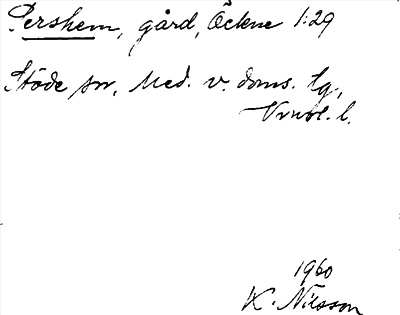 Pershem, gård, Öckne 1:29
Stöde sn, Med. v. doms. tg.,
Vnorl. l.
1960
K. Nilsson